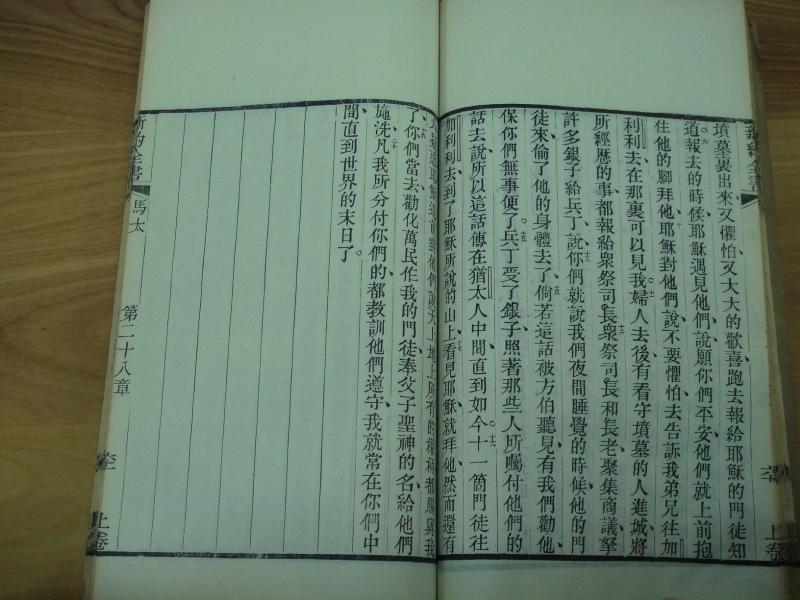 墳墓裏出來、又懼怕、又大大的歡喜、跑去報給耶穌的門徒知
道、報去的時候、耶穌遇見他們、說、願你們平安、他們就上前抱
住他的腳拜他、耶穌對他們說、不要懼怕、去告訴我弟兄、往加
利利去、在那裏可以見我。婦人去後、有看守墳墓的人進城、將
所經歷的事、都報給衆祭司長、衆祭司長和長老聚集商議、拏
許多銀子給兵丁、說、你們就說我們夜間睡覺的時候、他的門
徒來偷了他的身體去了、倘若這話被方伯聽見、有我們勸他、
保你們無事便了。兵丁受了銀子、照著那些人所囑付他們的
話去說、所以這話傳在猶太人中間、直到如今。十一箇門徒往
加利利去、到了耶穌所說的山上、看見耶穌、就拜他、然而還有
對他們說、天上地上所有的權柄都賜與我
了、你們當去勸化萬民作我的門徒、奉父子聖神的名、給他們
施洗、凡我所分付你們的、都教訓他們遵守、我就常在你們中
間、直到世界的末日了。
新約全書
馬太
第二十八章
上卷
上卷